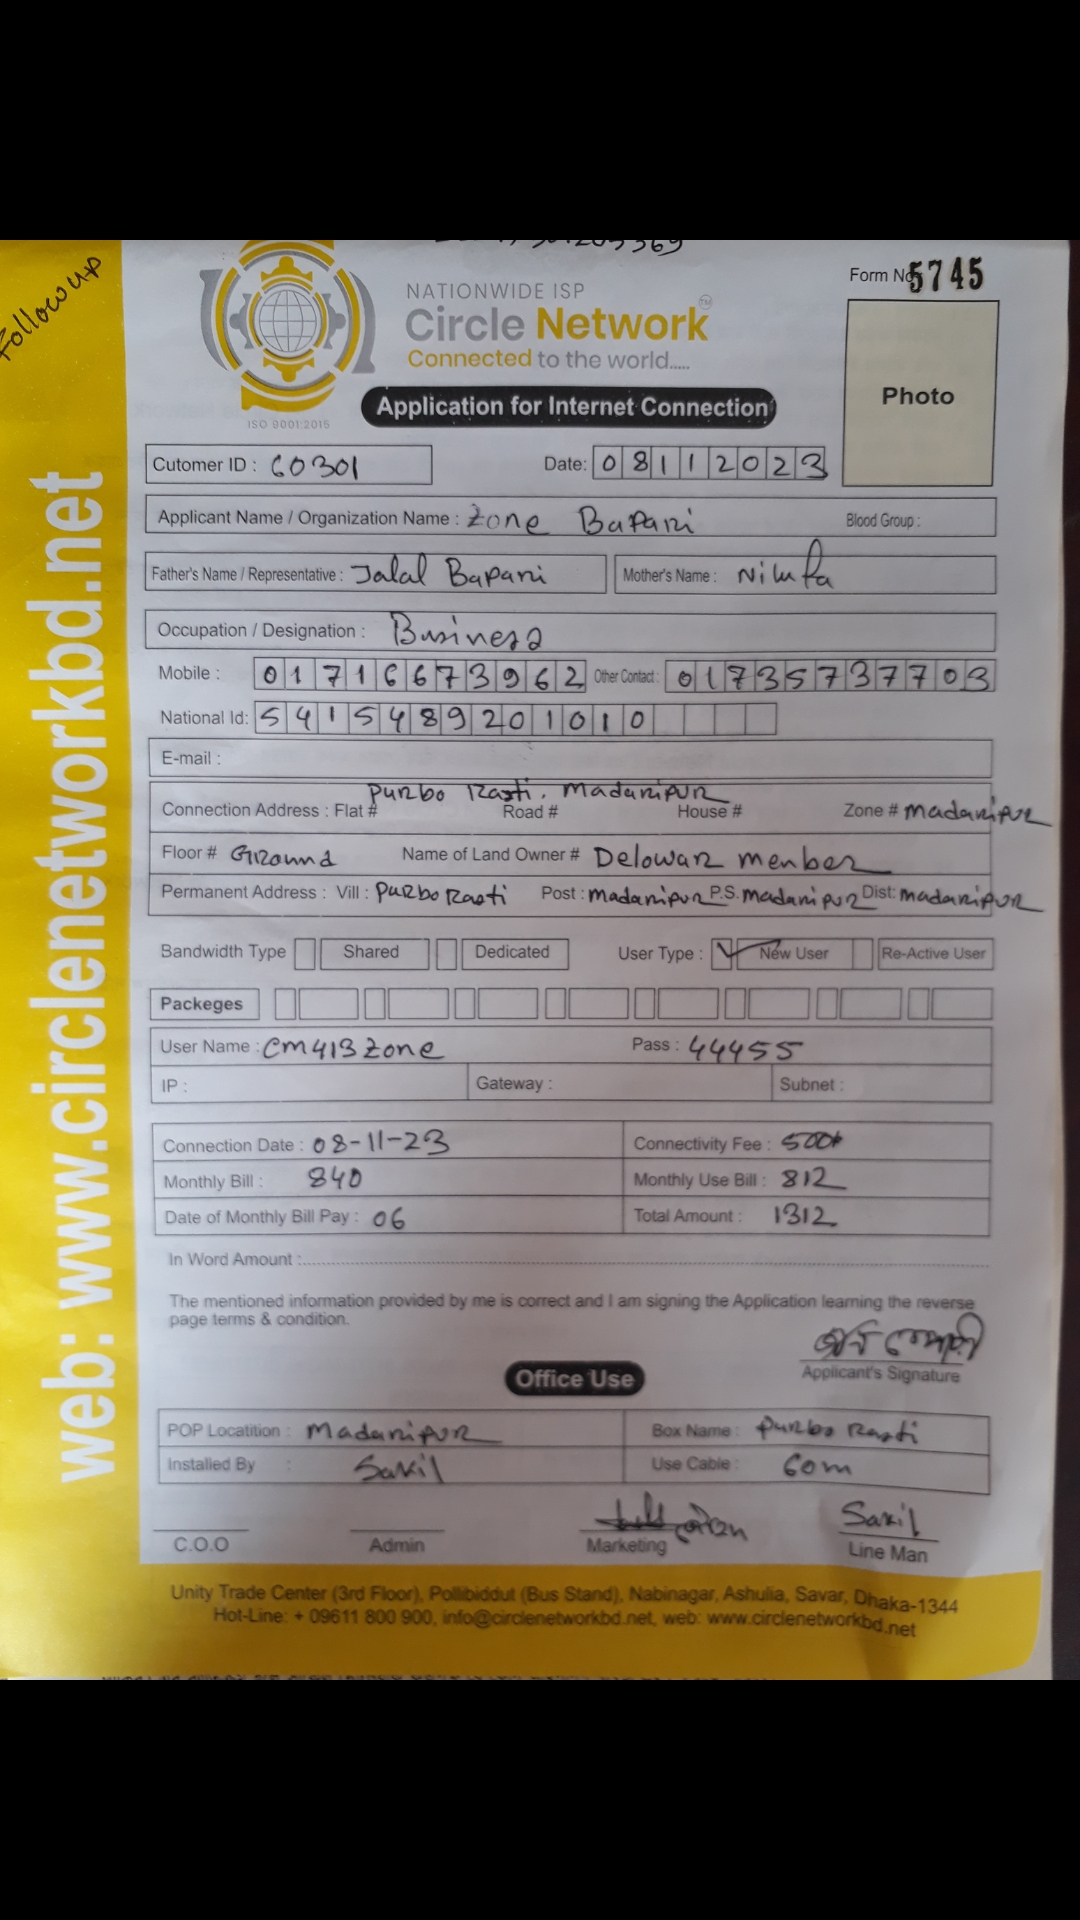 Follow up
NATIONWIDE ISP
Circle Network TM
Connected to the world.....
ISO 9001:2015
Form No 5745
Photo
Application for Internet Connection
Cutomer ID : 60301 Date: 08112023
Applicant Name / Organization Name : Zone Bapari Blood Group :
Father's Name / Representative : Jalal Bapari Mother's Name : Nilufa
Occupation / Designation : Business
Mobile : 01716673962 Other Contact : 01735737703
National Id: 5415489201010
E-mail :
Purbo Rasti. Madaripur
Connection Address : Flat # Road # House # Zone # Madaripur
Floor # Ground Name of Land Owner # Delowar member
Permanent Address : Vill : Purbo Rasti Post : Madaripur P.S. Madaripur Dist: Madaripur
Bandwidth Type Shared Dedicated User Type : New User Re-Active User
Packeges
User Name : cm413zone Pass : 44455
IP : Gateway : Subnet :
Connection Date : 08-11-23 Connectivity Fee : 500
Monthly Bill : 840 Monthly Use Bill : 812
Date of Monthly Bill Pay : 06 Total Amount : 1312
In Word Amount :
The mentioned information provided by me is correct and I am signing the Application learning the reverse
page terms & condition.
Applicant's Signature
Office Use
POP Locatition : Madaripur Box Name : Purbo Rasti
Installed By : Sakil Use Cable : 60m
Sakil
C.O.O Admin Marketing Line Man
Unity Trade Center (3rd Floor), Pollibiddut (Bus Stand), Nabinagar, Ashulia, Savar, Dhaka-1344
Hot-Line: + 09611 800 900, info@circlenetworkbd.net, web: www.circlenetworkbd.net
web: www.circlenetworkbd.net